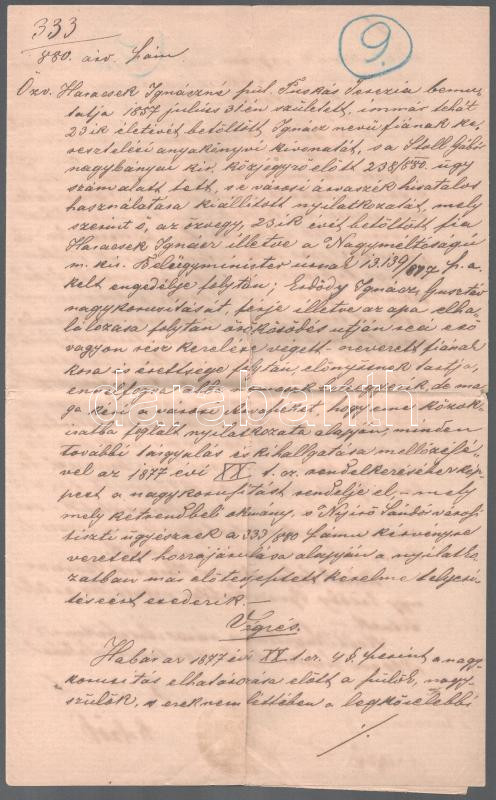 333
880. árv. szám.
9.
Özv. Haracsek Ignáczné szül. Puskás Terezia bemu-
tatja 1857 julius 31én született, immár tehát
23ik életévét betöltött Ignacz nevü fiának ke-
resztelési anyakönyvi kivonatát, s a Stoll Gábor
nagybányai kir. közjegyző előtt 238/880. ügy
szám alatt tett, s e városi árvaszék hivatalos
használatára kiállitott nyilatkozatát, mely
szerint ő, az özvegy, 23ik évet betöltött fia
Haracsek Ignácz illetve a Nagyméltóságú
m. kir. Belügyminister urnak 13.139/877 sz. a.
kelt engedélye folytán, Erdődy Ignácz Gusztáv
nagykorusitását, férje illetve az apa elha-
lálozása folytán örökösödés utján reá eső
vagyon rész kezelése végett nevezett fiának
kora s érettsége folytán, előnyösnek tartja,
ennélfogva
ga kéri a városi árvaszéket, hogy eme közok-
iratba foglalt nyilatkozata alapján, minden
további tárgyalás és kihallgatása mellőzésé-
vel az 1877 évi XX t. cz. rendelkezéséhez ké-
pest a nagykorusitást rendelje el, mely
mely kétrendbeli okmány, s Nyirő Sándor városi
tiszti ügyésznek a 333/880 számu kérvényre
vezetett hozzájárulása alapján a nyilatko-
zatban már előterjesztett kérelme teljesi-
téseért esedezik.
Végzés.
Habár az 1877 évi XX t. cz. 4 §. szerint a nagy-
korusitás elhatározása előtt a szülők, nagy-
szülők, s ezek nem létében a legközelebbi
./.
darabanth